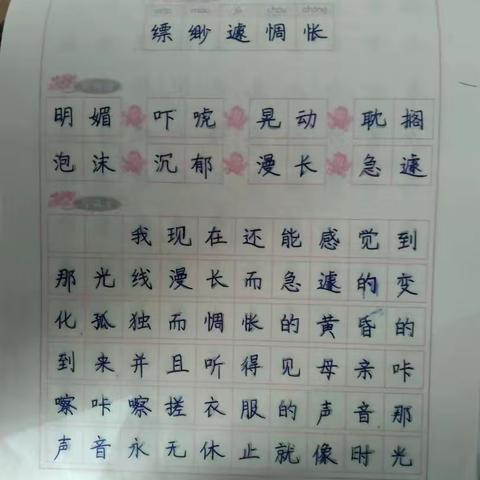 缥缈遽惆怅
明媚 吓唬 晃动 耽搁
泡沫 沉郁 漫长 急遽
我现在还能感觉到
那光线漫长而急遽的变
化孤独而惆怅的黄昏的
到来并且听得见母亲咔
嚓咔嚓搓衣服的声音那
声音永无休止就像时光